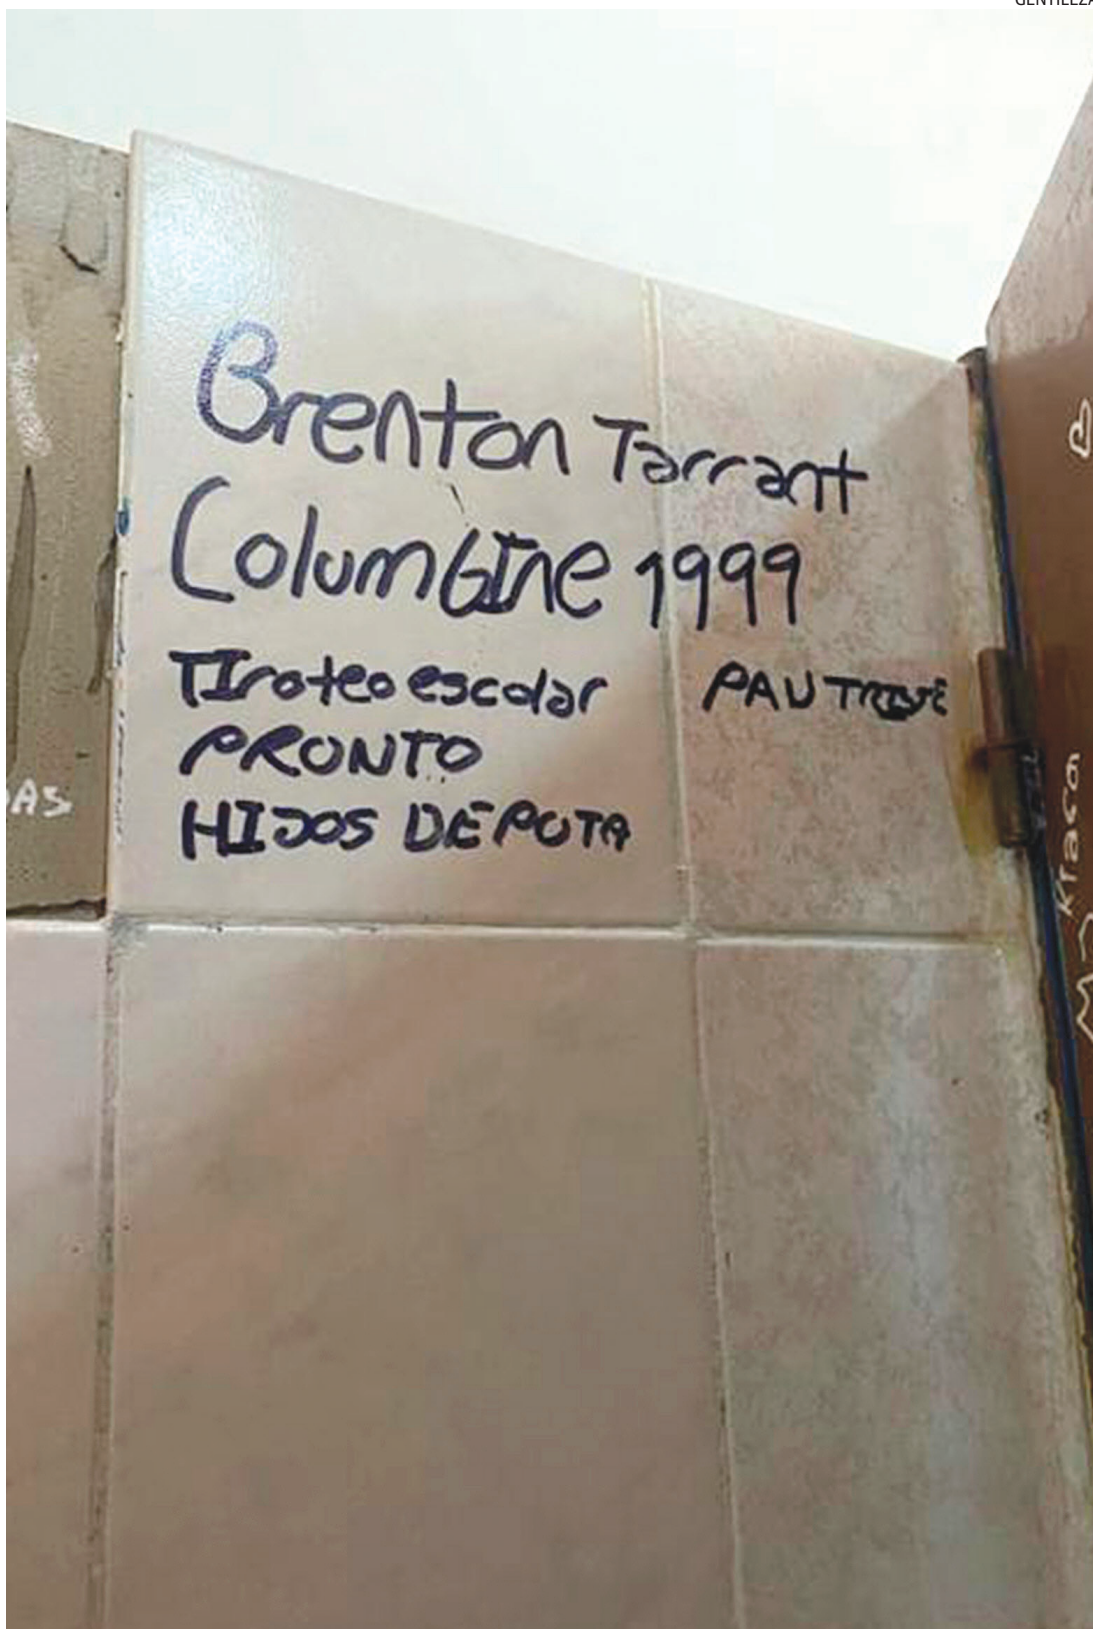 Brenton Tarrant
Columbine 1999
TIroteo escolar
PRONTO
HIJOS DE PUTA
PAU
AS